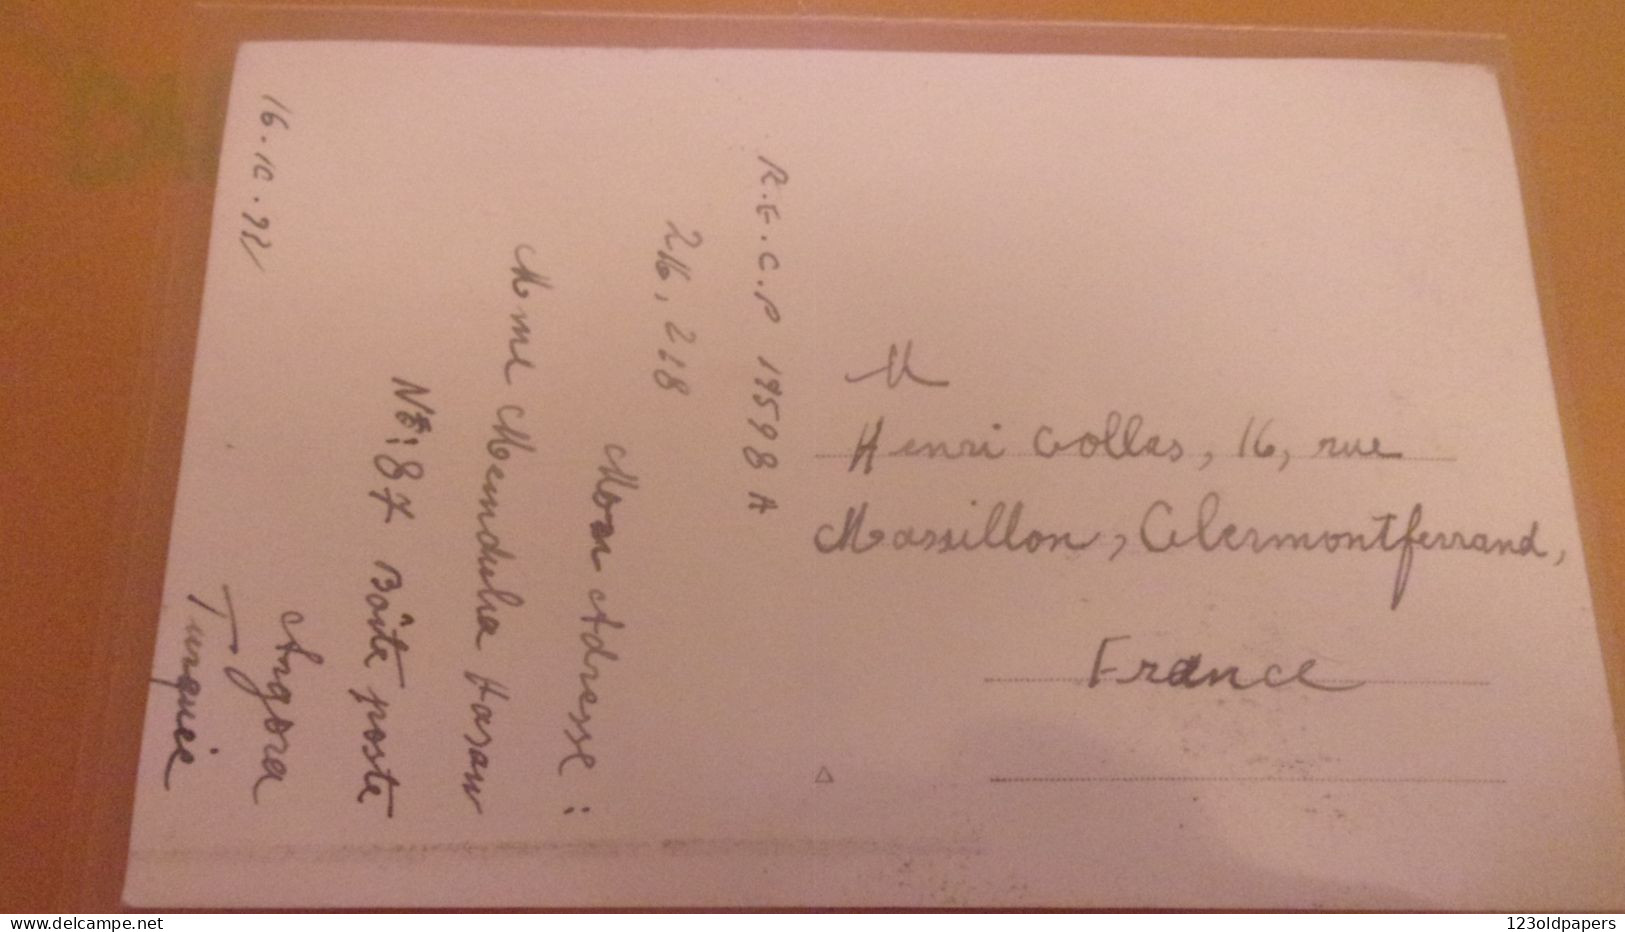 R.E.C.P 19598 A
216, 218
Mon Adresse :
Mme Memduha Hasan
No: 87 Boîte poste
Angora
Turquie
16.10.92
M
Henri Collas, 16, rue
Massillon, Clermontferrand,
France
delcampe.net
123oldpapers